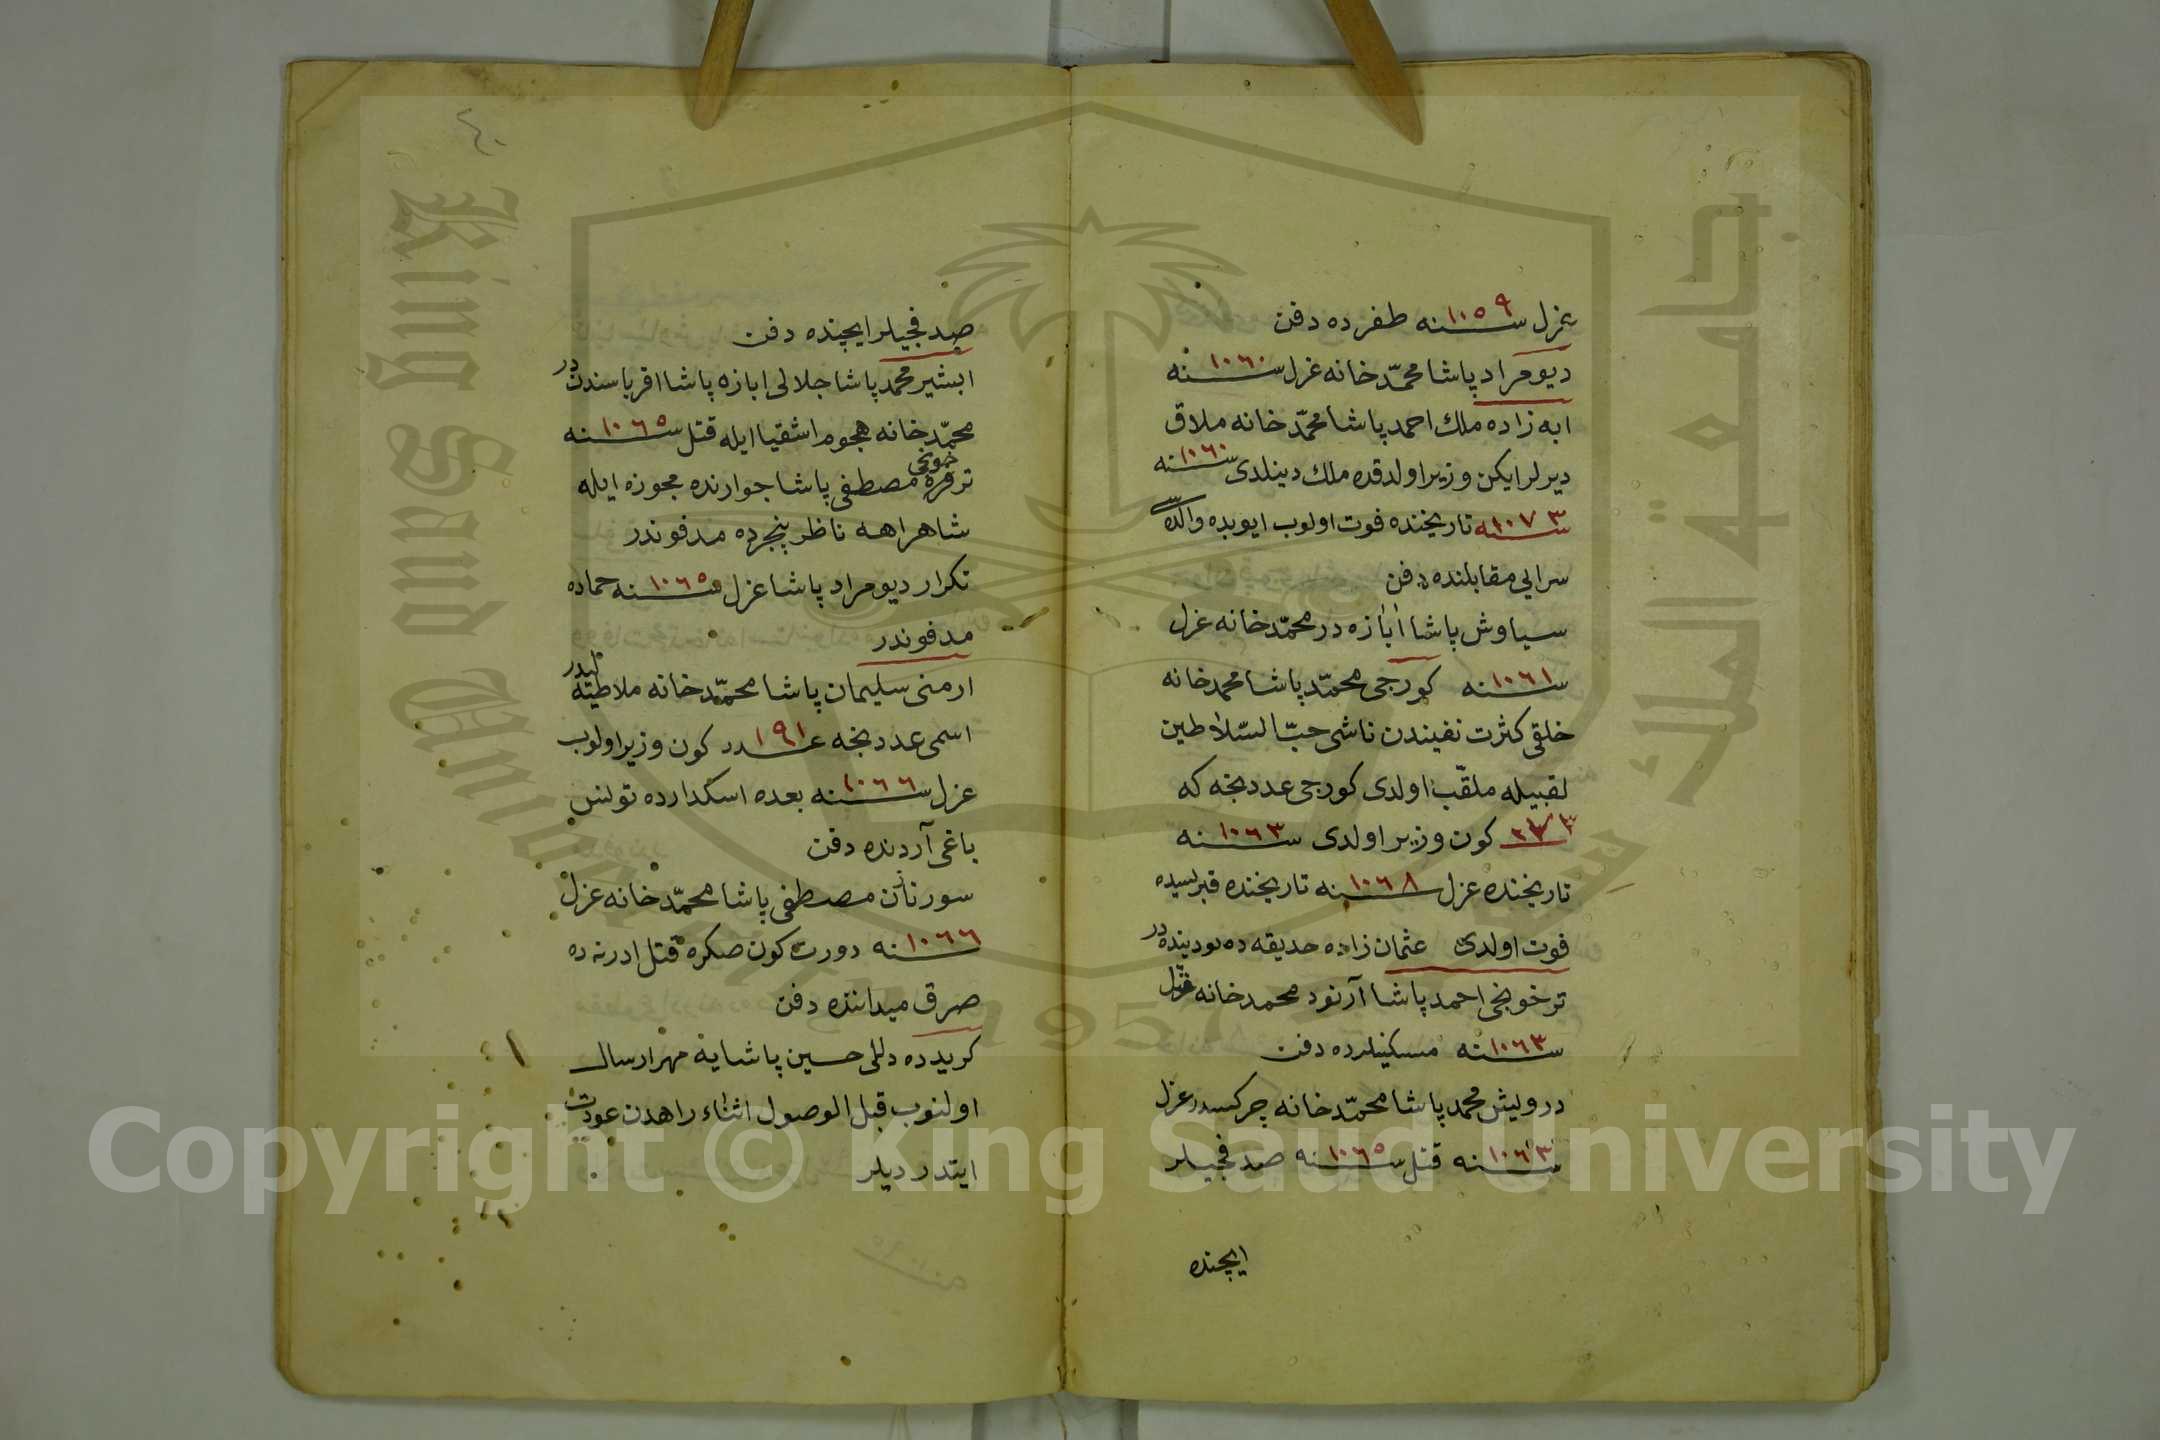 عزل سنه ١٠٥٩ طفرده دفن
ديو مراد پاشا محمّد خانه عزل سنه ١٠٦٠
ابه زاده ملك احمد پاشا محمّد خانه ملاق
ديرلر ايكن وزير اولدقده ملك دينلدى سنه ١٠٦٠
سنه ١٠٧٣ تاريخنده فوت اولوب ايوبده
سرايى مقابلنده دفن
سياوش پاشا اباזه در محمّد خانه عزل
سنه ١٠٦١ كورجى محمّد پاشا محمد خانه
خلقى كثرت نفيندن ناشى حبّ السّلاطين
لقبيله ملقّب اولدى كورجى عددنجه كه
كون وزير اولدى سنه ١٠٦٣
تاريخنده عزل سنه ١٠٦٨ تاريخنده قبريسده
فوت اولدى عثمان زاده حديقه ده بودينده در
ترخونجى احمد پاشا آرنود محمد خانه قتل
سنه ١٠٦٣ مسكينلرده دفن
درويش محمد پاشا محمّد خانه چركسدر عزل
سنه ١٠٦٣ قتل سنه ١٠٦٥ صدفجيلر
ايچنده
٤٠
صدفجيلر ايچنده دفن
ابشير محمد پاشا جلالى ابازه پاشا اقرباسندن در
محمّد خانه هجوم اشقيا ايله قتل سنه ١٠٦٥
مصطفى پاشا جوارنده محوزه ايله
شاهراهه ناظر پنجرده مدفوندر
تكرار ديو مراد پاشا عزل سنه ١٠٦٥ حماده
مدفوندر
ارمنى سليمان پاشا محمّد خانه ملاطيه ليدر
اسمى عددنجه عدد ١٩١ كون وزير اولوب
عزل سنه ١٠٦٦ بعده اسكدارده تونس
باغى آردنده دفن
سورنازن مصطفى پاشا محمّد خانه عزل
سنه ١٠٦٦ دورت كون صكره قتل ادرنه ده
صرق ميداننده دفن
كريدده دللى حسين پاشايه مهر ارسال
اولنوب قبل الوصول اثناء راهدن عودت
ايتدر ديلر
جامعة الملك سعود
King Saud University
1957
Copyright © King Saud University